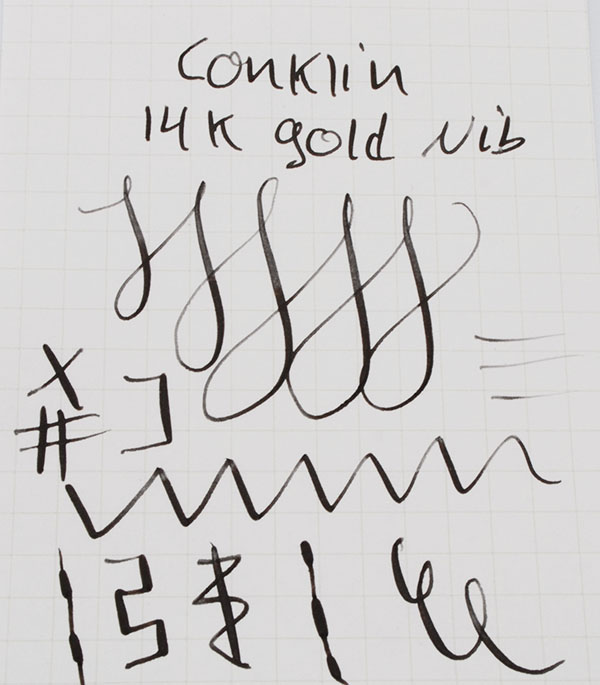 Conklin
14K gold Nib
X
#